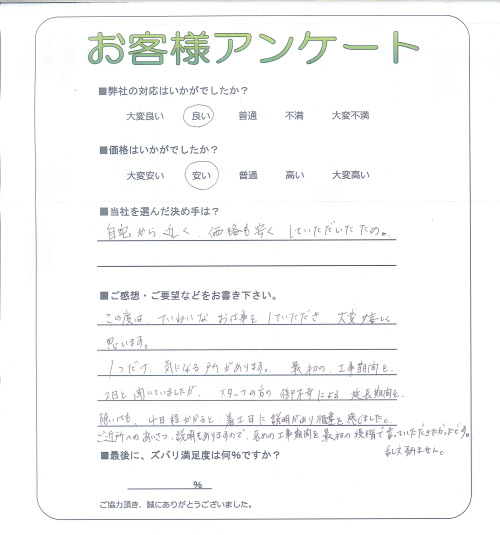 お客様アンケート
■弊社の対応はいかがでしたか？
大変良い 良い 普通 不満 大変不満
■価格はいかがでしたか？
大変安い 安い 普通 高い 大変高い
■当社を選んだ決め手は？
自宅から近く、価格も安くしていただいたため。
■ご感想・ご要望などをお書き下さい。
この度は、ていねいなお仕事をしていただき 大変嬉しく
思います。
1つだけ 気になる所があります。 最初の、工事期間を、
2日と聞いていましたが、スタッフの方の 御不幸による 延長期間を、
除いても、4日程かかると 着工日に説明があり を感じました。
ご近所へのあいさつ、説明もありますので、長めの工事期間を最初の段階で言っていただきたかったです。
乱文すみません。
■最後に、ズバリ満足度は何％ですか？
％
ご協力頂き、誠にありがとうございました。